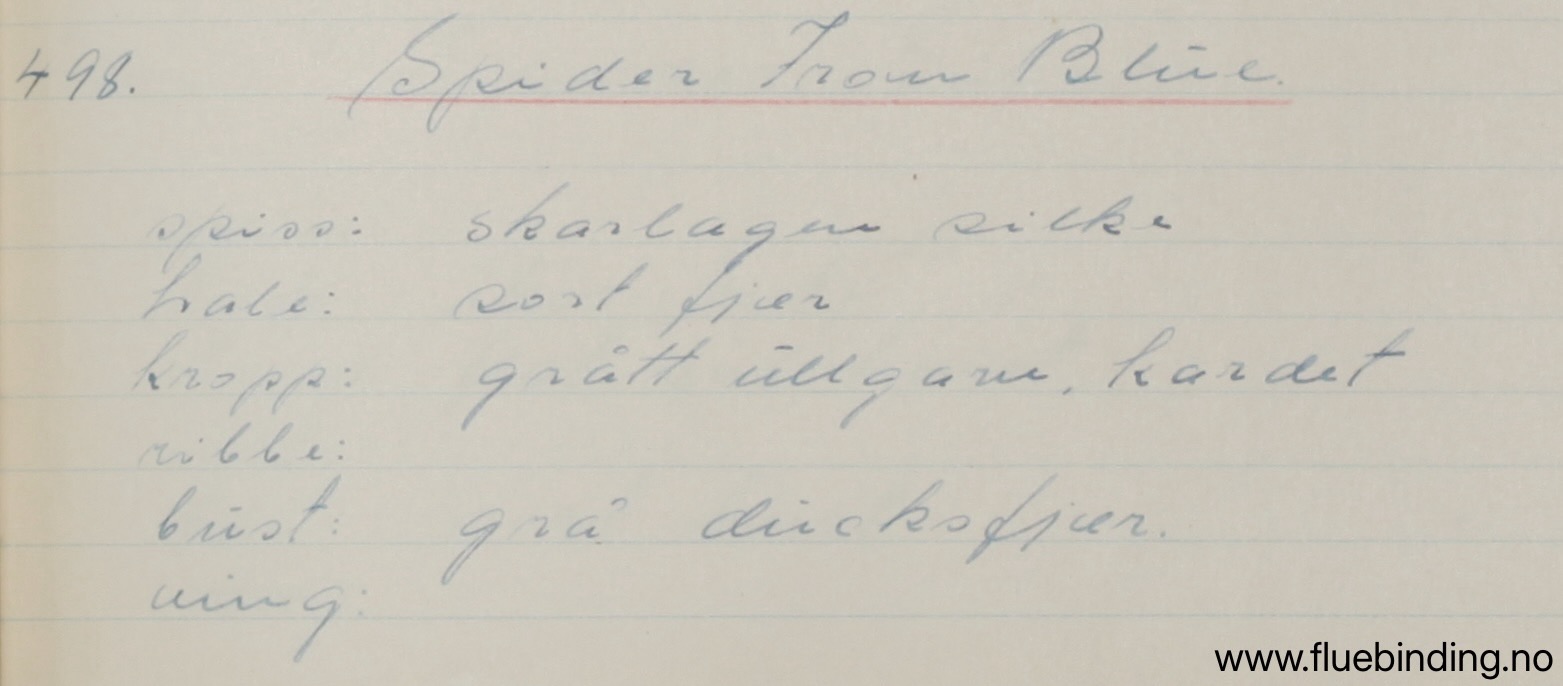 498. Spider Iron Blūe.
spiss: skarlagen silke
hale: sort fjær
kropp: grått ūllgarn, kardet
ribbe:
būst: grå dūcksfjær.
ving:
www.fluebinding.no